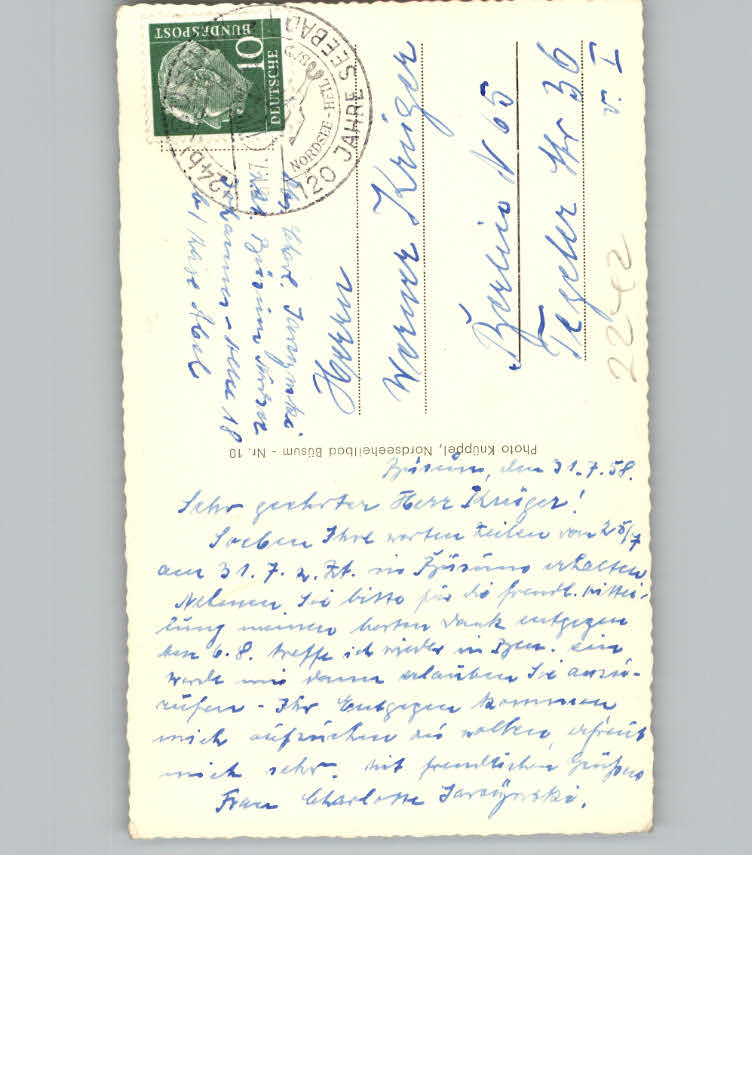 DEUTSCHE
BUNDESPOST
10
120 JAHRE SEEBAD
NORDSEE-HEIL
(24b)
Charl.
Büsum
18
b/ Abel
Herrn
Werner Krüger
Berlin N 65
Tegeler Str 36
v. I
2242
Photo Knüppel, Nordseeheilbad Büsum - Nr. 10
Büsum, den 31.7.58.
Sehr geehrter Herr Krüger!
Soeben Ihre werten Zeilen vom 25/7
am 31.7. z. Zt. in Büsum erhalten
Nehmen Sie bitte für die freundl. Mittei-
lung meinen besten Dank entgegen
den 6.8. treffe ich wieder in Bln. ein
werde mir dann erlauben Sie anzu-
rufen - Ihr Entgegen kommen
mich aufsuchen zu wollen, erfreut
mich sehr. Mit freundlichen Grüßen
Frau Charlotte